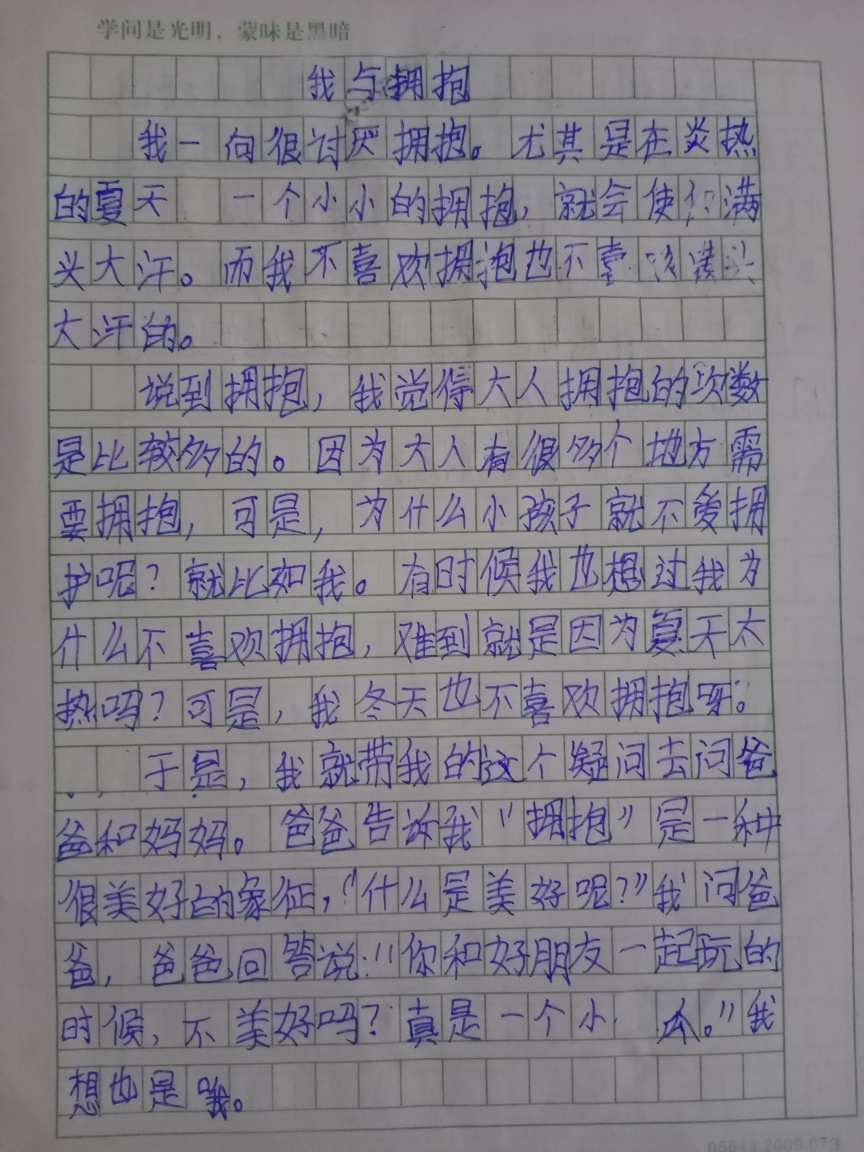 学问是光明，蒙昧是黑暗
我与拥抱
我一向很讨厌拥抱。尤其是在炎热
的夏天 一个小小的拥抱，就会使你满
头大汗。而我不喜欢拥抱也不喜 满头
大汗的。
说到拥抱，我觉得大人拥抱的次数
是比较多的。因为大人有很多个地方需
要拥抱，可是，为什么小孩子就不爱拥
护呢？就比如我。有时候我也想过我为
什么不喜欢拥抱，难到就是因为夏天太
热吗？可是，我冬天也不喜欢拥抱呀。
于是，我就带我的这个疑问去问爸
爸和妈妈。爸爸告诉我“拥抱”是一种
很美好的象征，“什么是美好呢？”我问爸
爸，爸爸回答说：“你和好朋友一起玩的
时候，不美好吗？真是一个小 。”我
想也是哦。